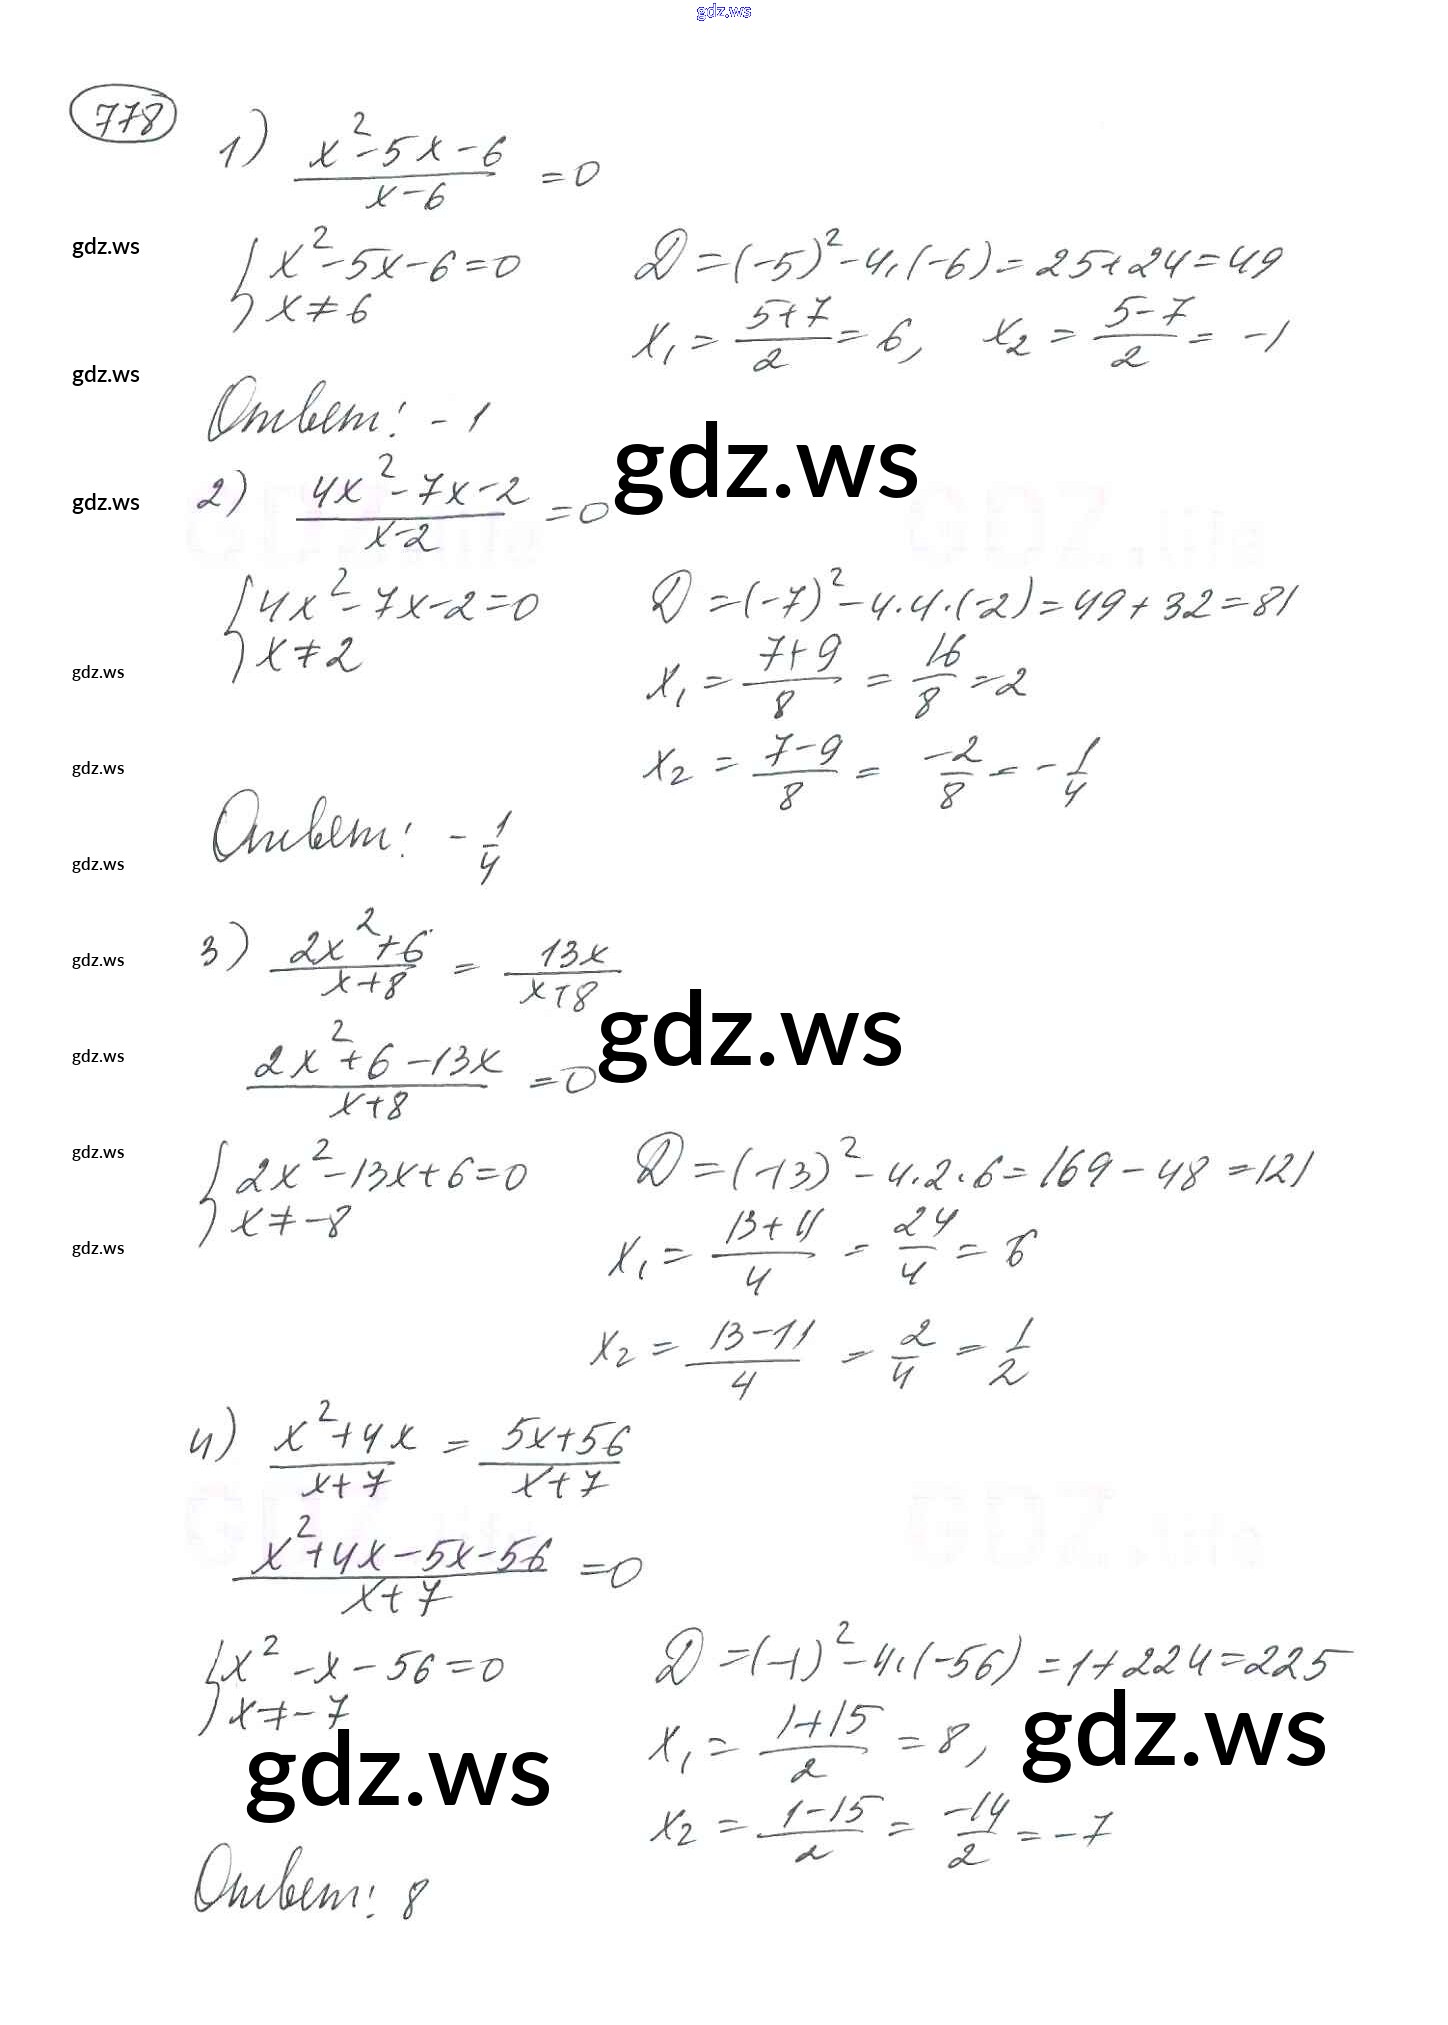 gdz.ws
778
1) (x² - 5x - 6)/(x - 6) = 0
gdz.ws
{ x² - 5x - 6 = 0
x ≠ 6
D = (-5)² - 4·(-6) = 25 + 24 = 49
x₁ = (5+7)/2 = 6, x₂ = (5-7)/2 = -1
gdz.ws
Ответ: -1
gdz.ws
gdz.ws
2) (4x² - 7x - 2)/(x - 2) = 0
GDZ.life GDZ.life
{ 4x² - 7x - 2 = 0
x ≠ 2
D = (-7)² - 4·4·(-2) = 49 + 32 = 81
gdz.ws
x₁ = (7+9)/8 = 16/8 = 2
gdz.ws
x₂ = (7-9)/8 = -2/8 = -1/4
gdz.ws
Ответ: -1/4
gdz.ws
3) (2x² + 6)/(x + 8) = 13x/(x + 8)
gdz.ws
gdz.ws
(2x² + 6 - 13x)/(x + 8) = 0
gdz.ws
{ 2x² - 13x + 6 = 0
x ≠ -8
D = (-13)² - 4·2·6 = 169 - 48 = 121
gdz.ws
x₁ = (13+11)/4 = 24/4 = 6
x₂ = (13-11)/4 = 2/4 = 1/2
4) (x² + 4x)/(x + 7) = (5x + 56)/(x + 7)
GDZ.life GDZ.life
(x² + 4x - 5x - 56)/(x + 7) = 0
{ x² - x - 56 = 0
x ≠ -7
D = (-1)² - 4·(-56) = 1 + 224 = 225
gdz.ws gdz.ws
x₁ = (1+15)/2 = 8,
x₂ = (1-15)/2 = -14/2 = -7
Ответ: 8